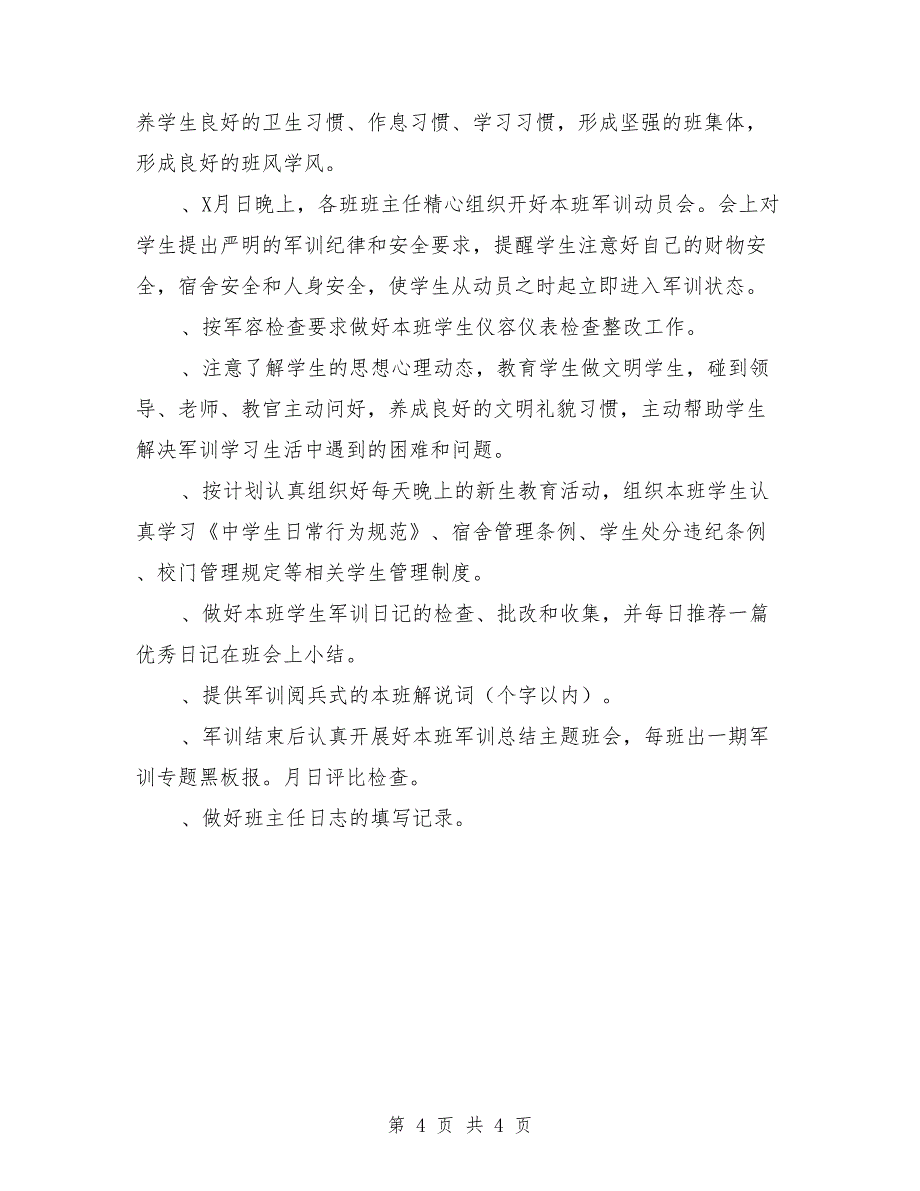 养学生良好的卫生习惯、作息习惯、学习习惯，形成坚强的班集体，
形成良好的班风学风。
、X月日晚上，各班班主任精心组织开好本班军训动员会。会上对
学生提出严明的军训纪律和安全要求，提醒学生注意好自己的财物安
全，宿舍安全和人身安全，使学生从动员之时起立即进入军训状态。
、按军容检查要求做好本班学生仪容仪表检查整改工作。
、注意了解学生的思想心理动态，教育学生做文明学生，碰到领
导、老师、教官主动问好，养成良好的文明礼貌习惯，主动帮助学生
解决军训学习生活中遇到的困难和问题。
、按计划认真组织好每天晚上的新生教育活动，组织本班学生认
真学习《中学生日常行为规范》、宿舍管理条例、学生处分违纪条例
、校门管理规定等相关学生管理制度。
、做好本班学生军训日记的检查、批改和收集，并每日推荐一篇
优秀日记在班会上小结。
、提供军训阅兵式的本班解说词（个字以内）。
、军训结束后认真开展好本班军训总结主题班会，每班出一期军
训专题黑板报。月日评比检查。
、做好班主任日志的填写记录。
第 4 页 共 4 页